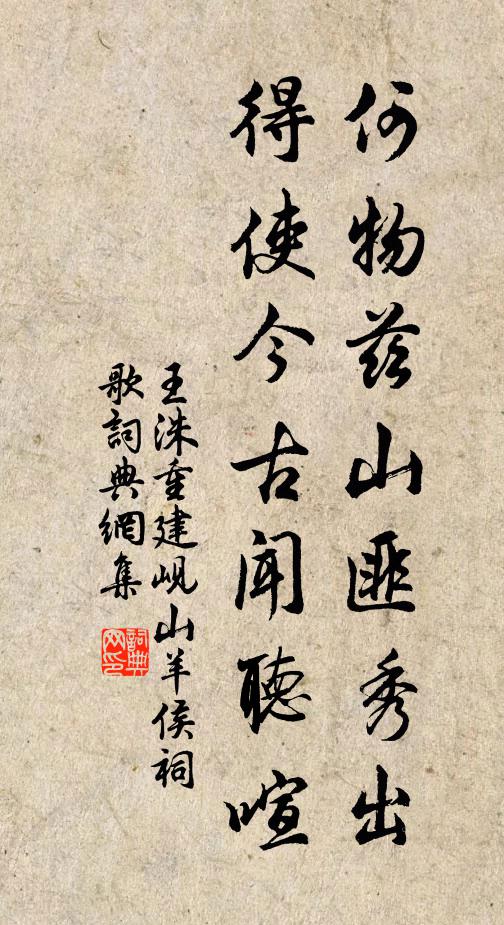 何物茲山匪秀出
得使今古聞聽喧
王洙重建峴山羊侯祠
歌詞典網集
詞典网印